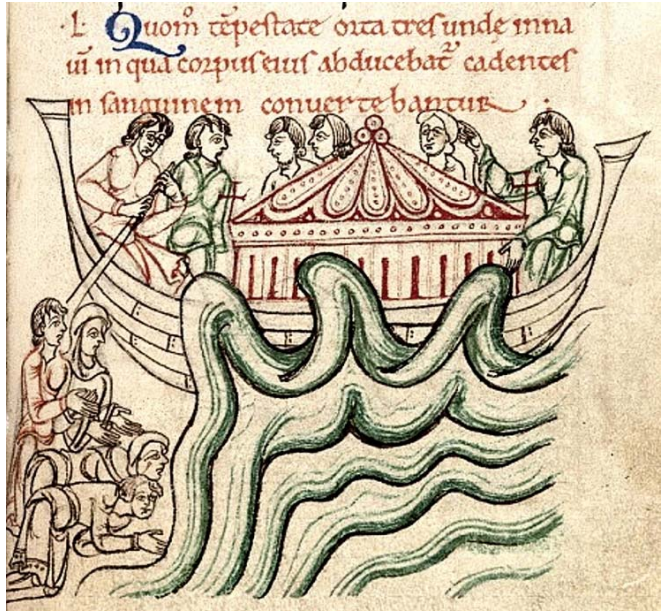 ·L· Quom̄ tēpestate orta tres unde in na
uī in qua corpus eius abducebat̄ cadentes
in sanguinem convertebantur :